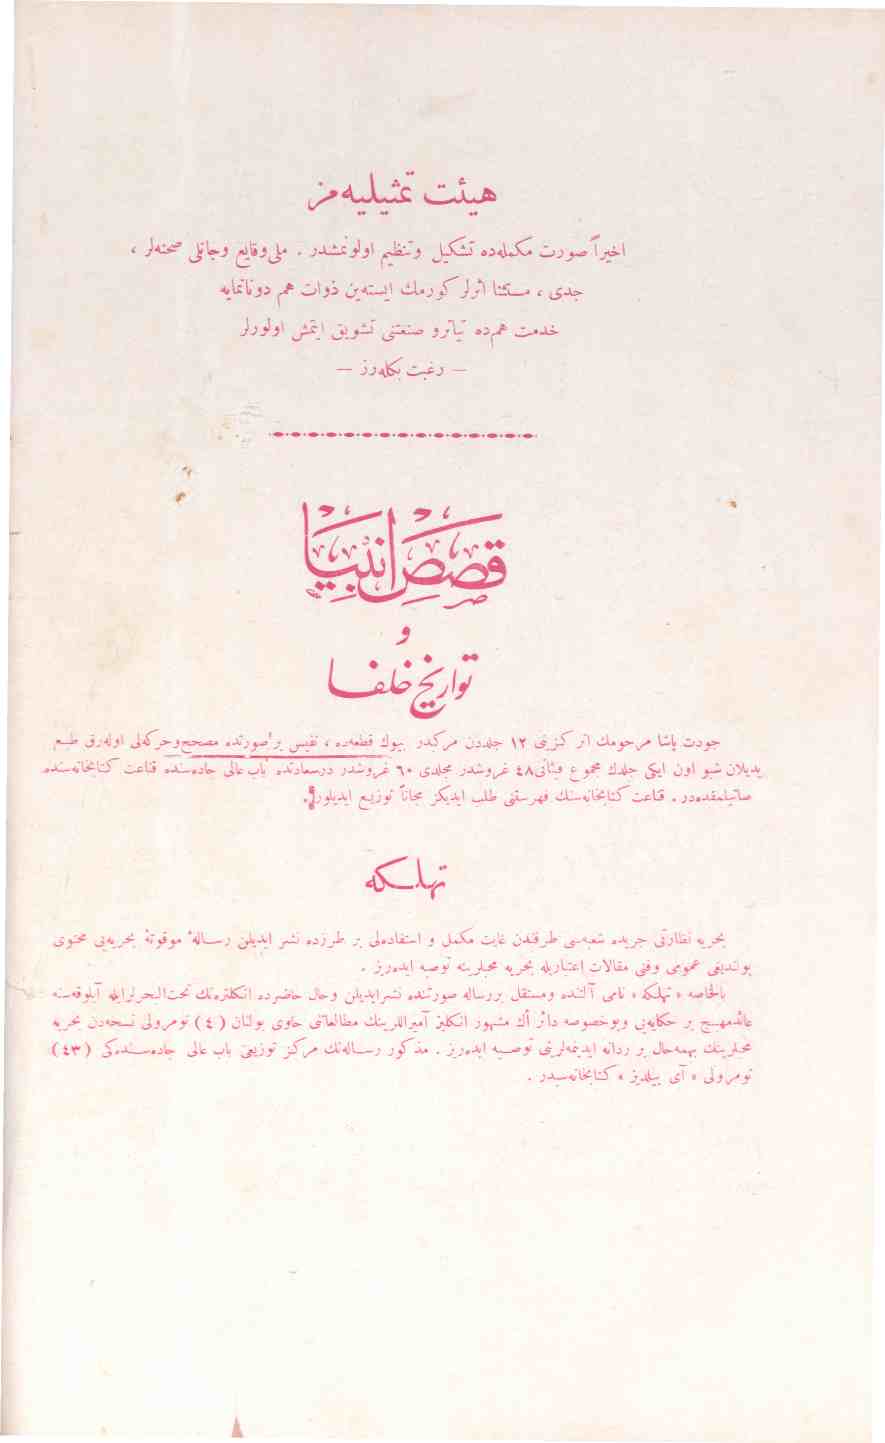 هیئت تمثیلیه‌مز
اخیراً صورت مکمله‌ده تشکیل وتنظیم اولونمشدر . ملی وقایع وجانلی صحنه‌لر ،
جدی ، مستثنا اثرلر کورمك ایسته‌ین ذوات هم دونانمایه
خدمت هم‌ده تیاترو صنعتنی تشویق ایتمش اولورلر
— رغبت بکله‌رز —
قصص انبیا
و
تواریخ خلفا
جودت پاشا مرحومك اثر کزینی ١٢ جلددن مرکبدر بیوك قطعه‌ده ، نفیس بر صورتده مصحح وحرکه‌لی اوله‌رق طبع
یدیلان شبو اون ایکی جلدك مجموع فیئاتی ٤٨ غروشدر مجلدی ٦٠ غروشدر درسعادتده باب عالی جاده‌سنده قناعت کتابخانه‌سنده
صاتیلمقده‌در . قناعت کتابخانه‌سنك فهرستنی طلب ایدیکز مجاناً توزیع ایدیلور .
تهلکه
بحریه نظارتی جریده شعبه‌سی طرفندن غایت مکمل و استفاده‌لی بر طرزده نشر ایدیلن رسالهٔ موقوتهٔ بحریه‌یی محتوی
بولندیغی عمومی وفنی مقالات اعتباریله بحریه محبلرینه توصیه ایده‌رز .
بالخاصه « تهلکه » نامی آلتنده ومستقل بررساله صورتنده نشرایدیلن وحال حاضرده انکلتره‌نك تحت‌البحرلرایله آبلوقه‌سنه
عائدمهیج بر حکایه‌یی وبوخصوصه دائر أك مشهور انکلیز آمیراللرینك مطالعاتنی حاوی بولنان ( ٤ ) نومرولی نسخه‌دن بحریه
محبلرینك بهمه‌حال بر ردانه ایدینمه‌لرینی توصیه ایده‌رز . مذکور رساله‌نك مرکز توزیعی باب عالی جاده‌سنده‌کی ( ٤٣ )
نومرولی « آی ییلدیز » کتابخانه‌سیدر .